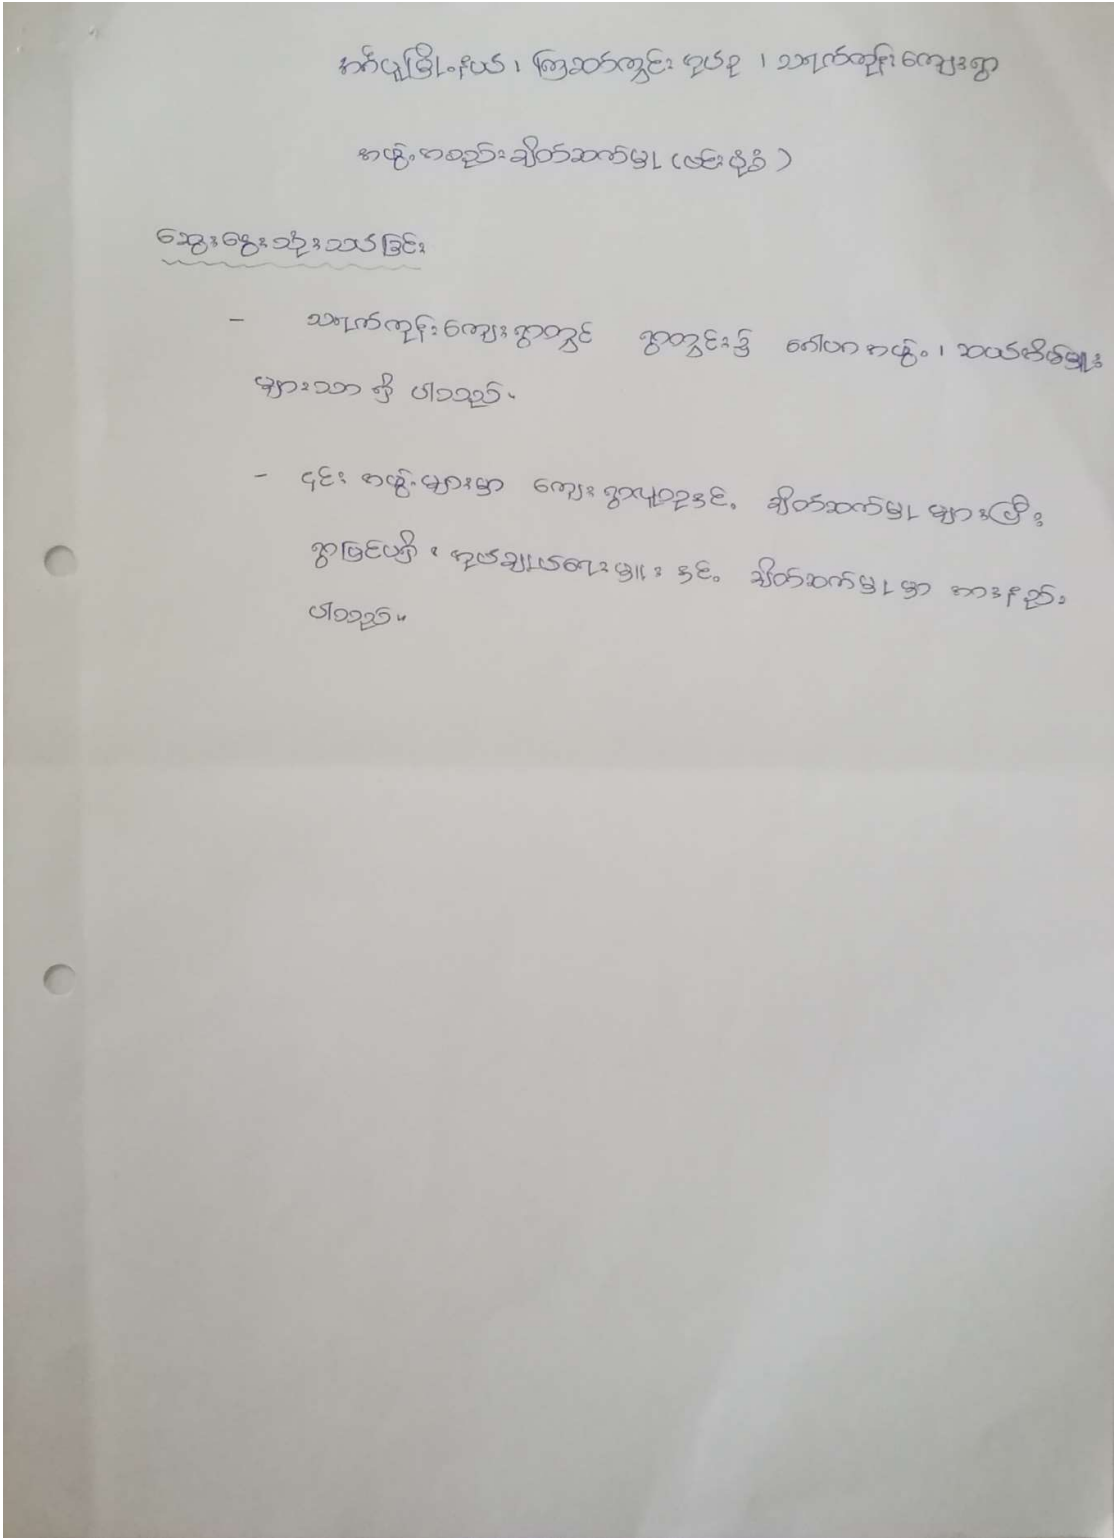 အင်္ဂပူမြို့နယ်၊ ကြဆတ်ကွင်းအုပ်စု၊ သရက်ကုန်းကျေးရွာ
အဖွဲ့အစည်းချိတ်ဆက်မှု (ဗင်းပုံစံ)
ဆွေးနွေးသုံးသပ်ခြင်း
- သရက်ကုန်းကျေးရွာတွင် ရွာတွင်း၌ ဖော်ပြအဖွဲ့၊ ဆယ်အိမ်မှူး
များသာ ရှိ ပါသည်။
- ၎င်း အဖွဲ့များမှာ ကျေးရွာလူထုနှင့် ချိတ်ဆက်မှု များပြီး
ရွာပြင်ပရှိ အုပ်ချုပ်ရေးမှူး နှင့် ချိတ်ဆက်မှု မှာ အားနည်း
ပါသည်။